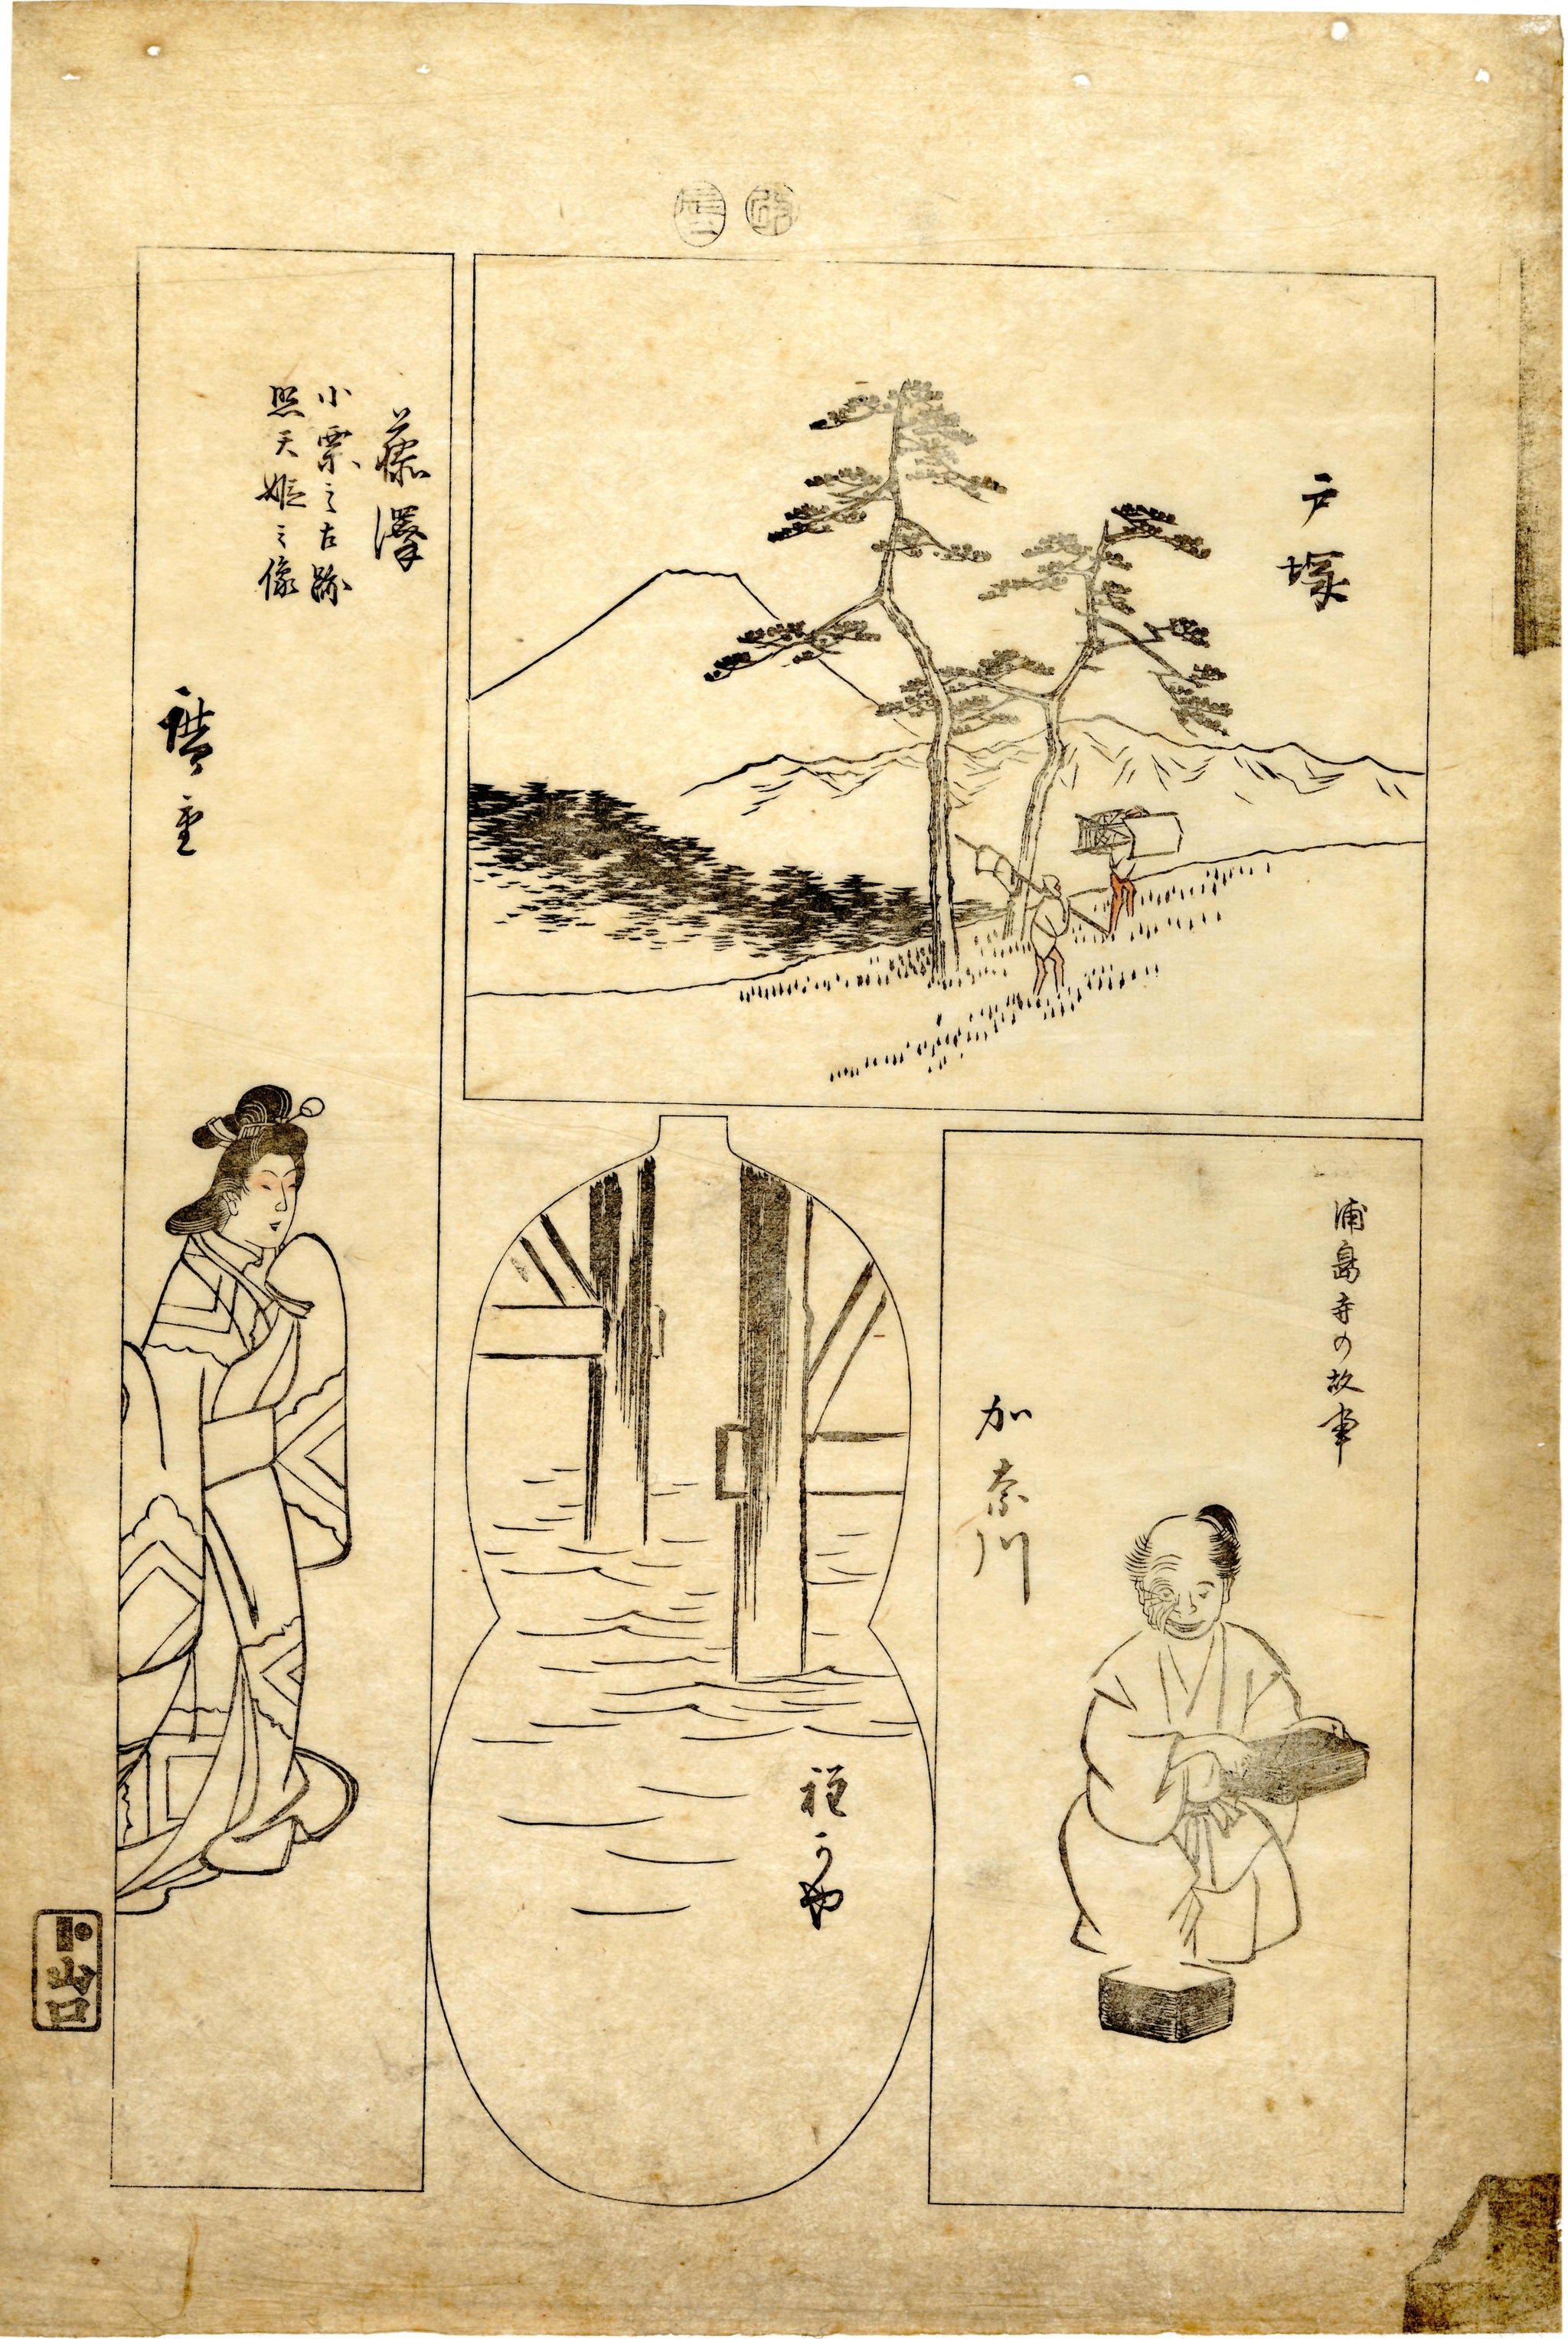 戸塚
浦島寺の故事
加奈川
程かや
藤澤
小栗之古跡
照天姫之像
廣重
山口